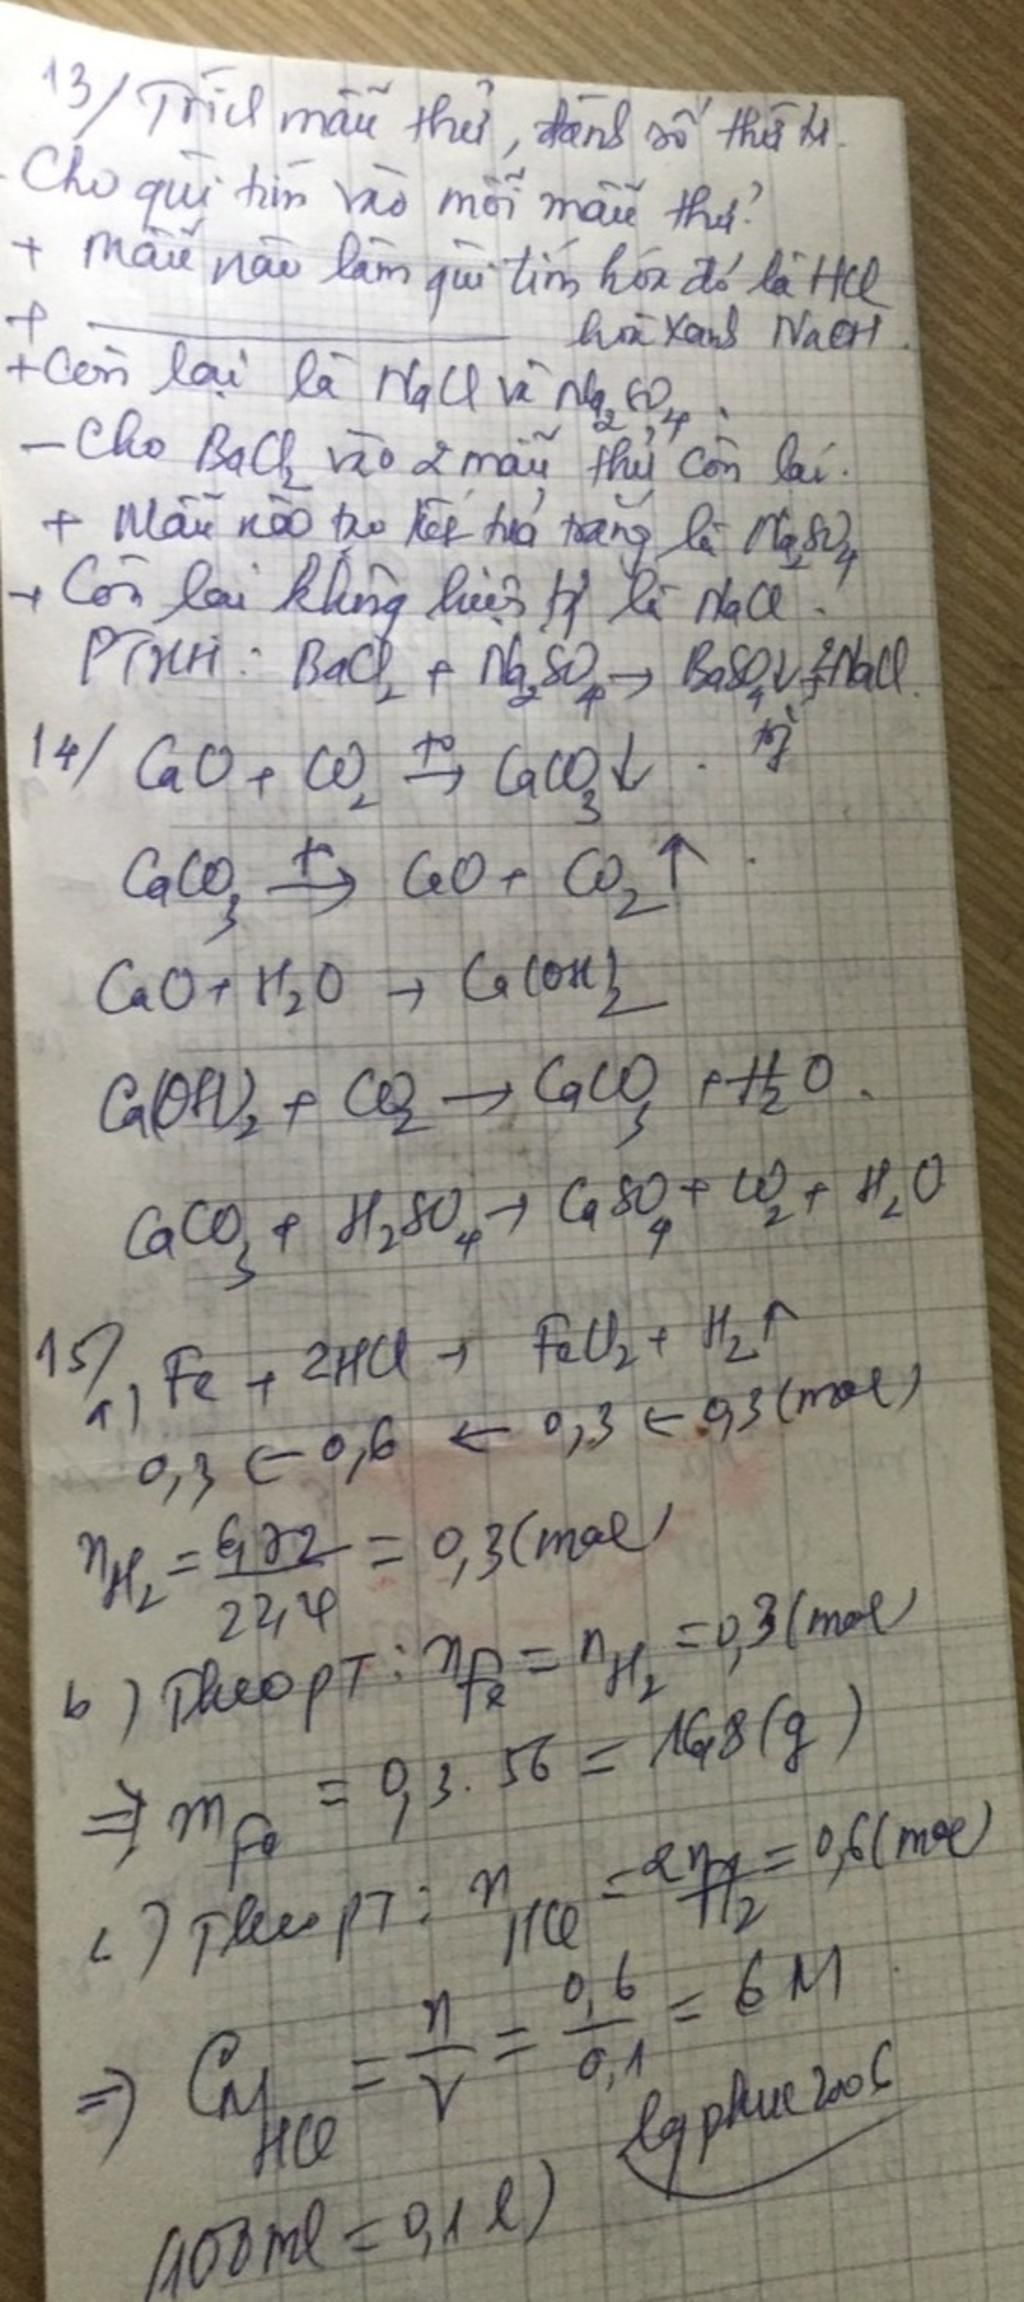 13/ Trích mẫu thử, đánh số thứ tự.
- Cho quì tím vào mỗi mẫu thử.
+ Mẫu nào làm quì tím hóa đỏ là HCl
+ ——— hóa xanh NaOH.
+ Còn lại là NaCl và Na₂SO₄.
- Cho BaCl₂ vào 2 mẫu thử còn lại.
+ Mẫu nào tạo kết tủa trắng là Na₂SO₄
+ Còn lại không hiện tg là NaCl.
PTHH: BaCl₂ + Na₂SO₄ → BaSO₄↓ + 2NaCl.
14/ CaO + CO₂ →(t°) CaCO₃↓.
CaCO₃ →(t°) CaO + CO₂↑.
CaO + H₂O → Ca(OH)₂
Ca(OH)₂ + CO₂ → CaCO₃ + H₂O.
CaCO₃ + H₂SO₄ → CaSO₄ + CO₂ + H₂O
15/
a) Fe + 2HCl → FeCl₂ + H₂↑
0,3 ← 0,6 ← 0,3 ← 0,3 (mol)
nH₂ = 6,72/22,4 = 0,3 (mol)
b) Theo pT: nFe = nH₂ = 0,3 (mol)
⇒ mFe = 0,3.56 = 16,8 (g)
c) Theo pT: nHCl = 2nH₂ = 0,6 (mol)
⇒ CM HCl = n/V = 0,6/0,1 = 6M
lgphuc2006
(100ml = 0,1 l)